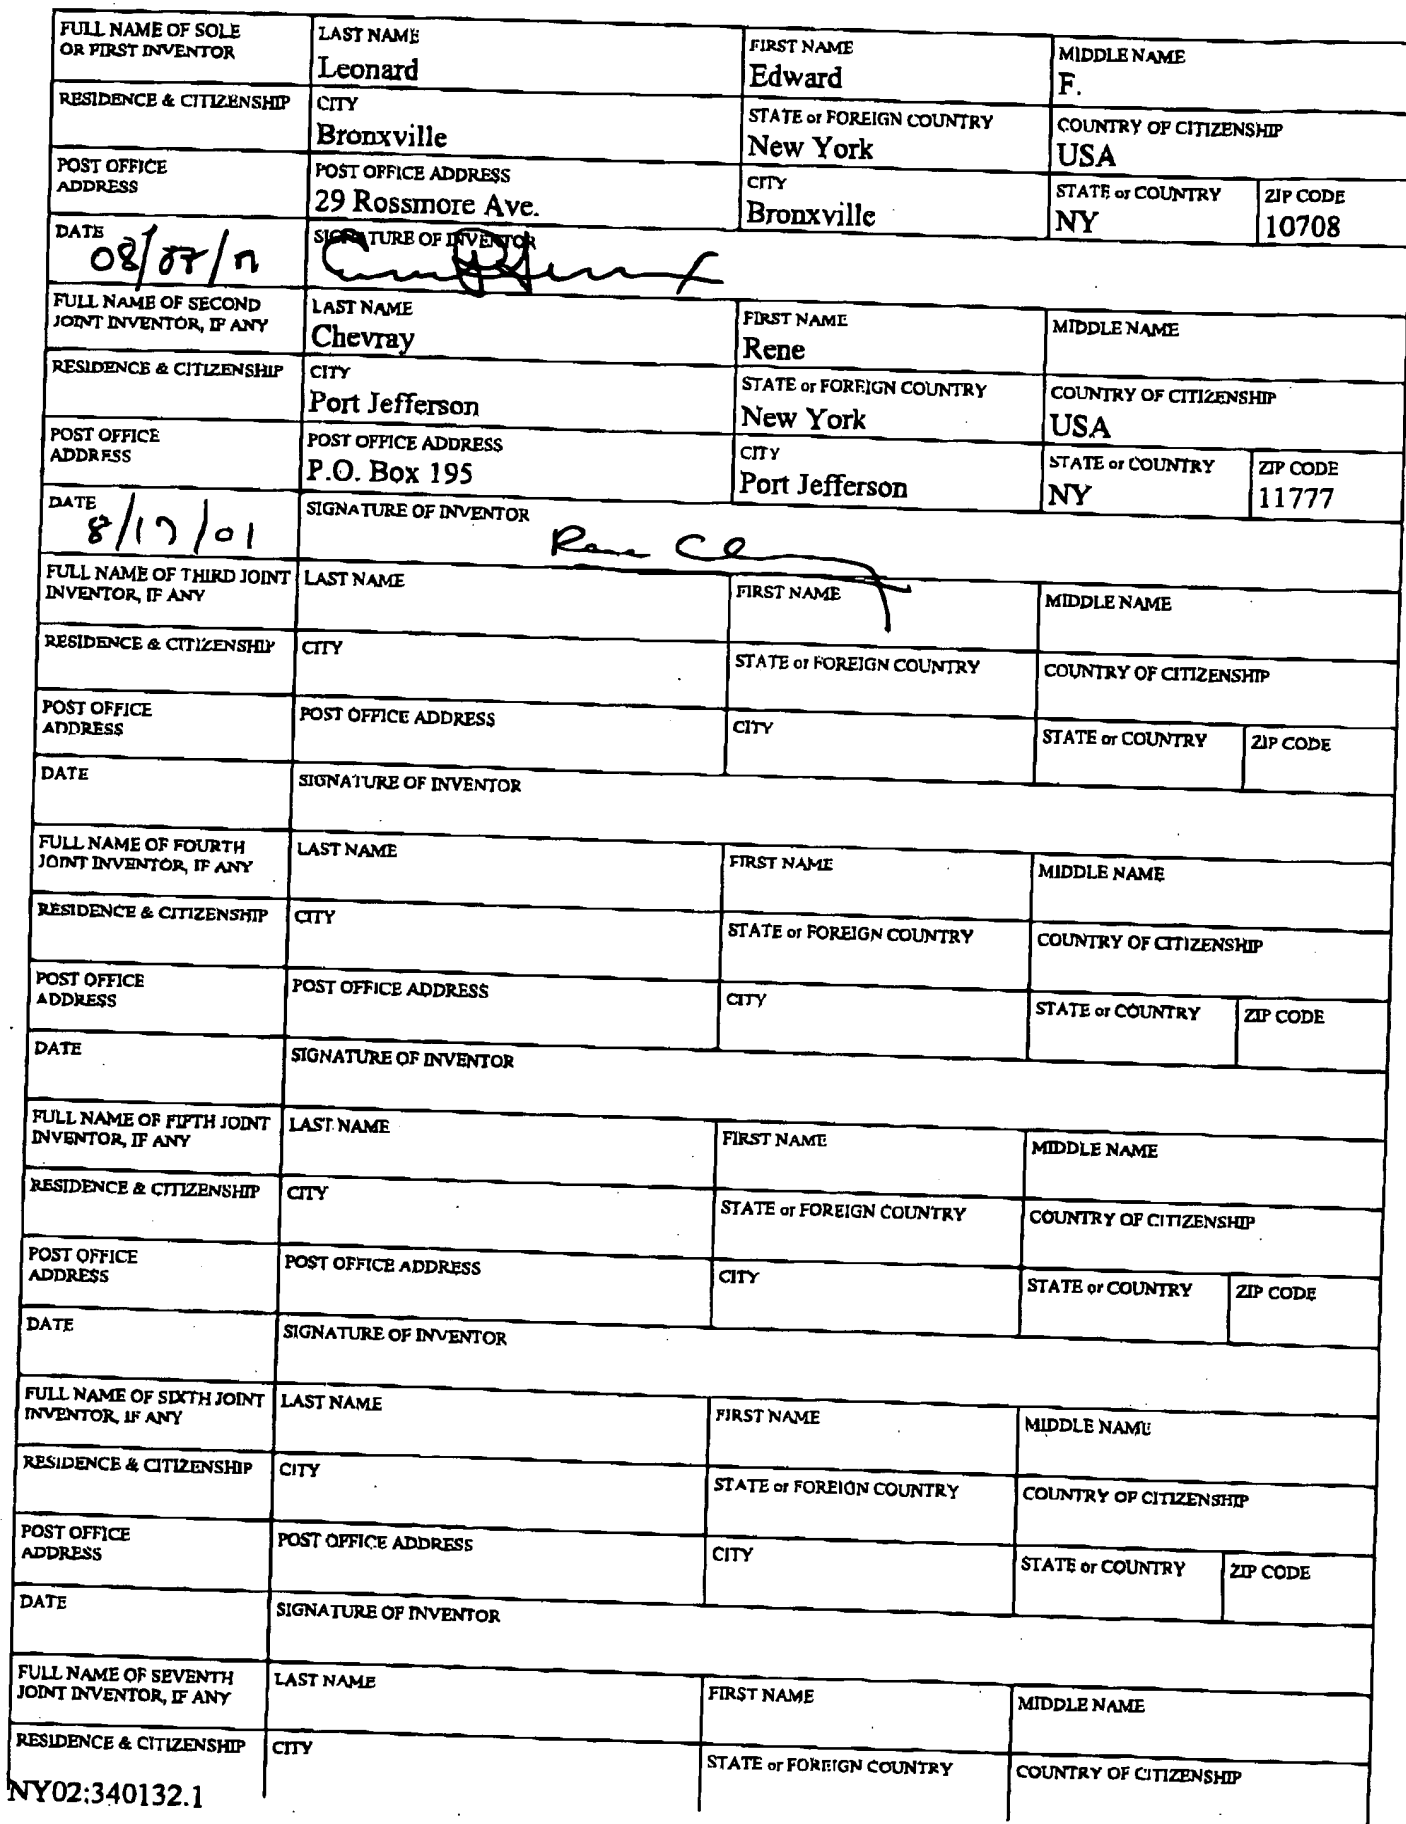 FULL NAME OF SOLE OR FIRST INVENTOR
LAST NAME
Leonard
FIRST NAME
Edward
MIDDLE NAME
F.
RESIDENCE & CITIZENSHIP
CITY
Bronxville
STATE or FOREIGN COUNTRY
New York
COUNTRY OF CITIZENSHIP
USA
POST OFFICE ADDRESS
POST OFFICE ADDRESS
29 Rossmore Ave.
CITY
Bronxville
STATE or COUNTRY
NY
ZIP CODE
10708
DATE
SIGNATURE OF INVENTOR
FULL NAME OF SECOND JOINT INVENTOR, IF ANY
LAST NAME
Chevray
FIRST NAME
Rene
MIDDLE NAME
RESIDENCE & CITIZENSHIP
CITY
Port Jefferson
STATE or FOREIGN COUNTRY
New York
COUNTRY OF CITIZENSHIP
USA
POST OFFICE ADDRESS
POST OFFICE ADDRESS
P.O. Box 195
CITY
Port Jefferson
STATE or COUNTRY
NY
ZIP CODE
11777
DATE
8/17/01
SIGNATURE OF INVENTOR
FULL NAME OF THIRD JOINT INVENTOR, IF ANY
LAST NAME
FIRST NAME
MIDDLE NAME
RESIDENCE & CITIZENSHIP
CITY
STATE or FOREIGN COUNTRY
COUNTRY OF CITIZENSHIP
POST OFFICE ADDRESS
POST OFFICE ADDRESS
CITY
STATE or COUNTRY
ZIP CODE
DATE
SIGNATURE OF INVENTOR
FULL NAME OF FOURTH JOINT INVENTOR, IF ANY
LAST NAME
FIRST NAME
MIDDLE NAME
RESIDENCE & CITIZENSHIP
CITY
STATE or FOREIGN COUNTRY
COUNTRY OF CITIZENSHIP
POST OFFICE ADDRESS
POST OFFICE ADDRESS
CITY
STATE or COUNTRY
ZIP CODE
DATE
SIGNATURE OF INVENTOR
FULL NAME OF FIFTH JOINT INVENTOR, IF ANY
LAST NAME
FIRST NAME
MIDDLE NAME
RESIDENCE & CITIZENSHIP
CITY
STATE or FOREIGN COUNTRY
COUNTRY OF CITIZENSHIP
POST OFFICE ADDRESS
POST OFFICE ADDRESS
CITY
STATE or COUNTRY
ZIP CODE
DATE
SIGNATURE OF INVENTOR
FULL NAME OF SIXTH JOINT INVENTOR, IF ANY
LAST NAME
FIRST NAME
MIDDLE NAME
RESIDENCE & CITIZENSHIP
CITY
STATE or FOREIGN COUNTRY
COUNTRY OF CITIZENSHIP
POST OFFICE ADDRESS
POST OFFICE ADDRESS
CITY
STATE or COUNTRY
ZIP CODE
DATE
SIGNATURE OF INVENTOR
FULL NAME OF SEVENTH JOINT INVENTOR, IF ANY
LAST NAME
FIRST NAME
MIDDLE NAME
RESIDENCE & CITIZENSHIP
CITY
STATE or FOREIGN COUNTRY
COUNTRY OF CITIZENSHIP
NY02:340132.1